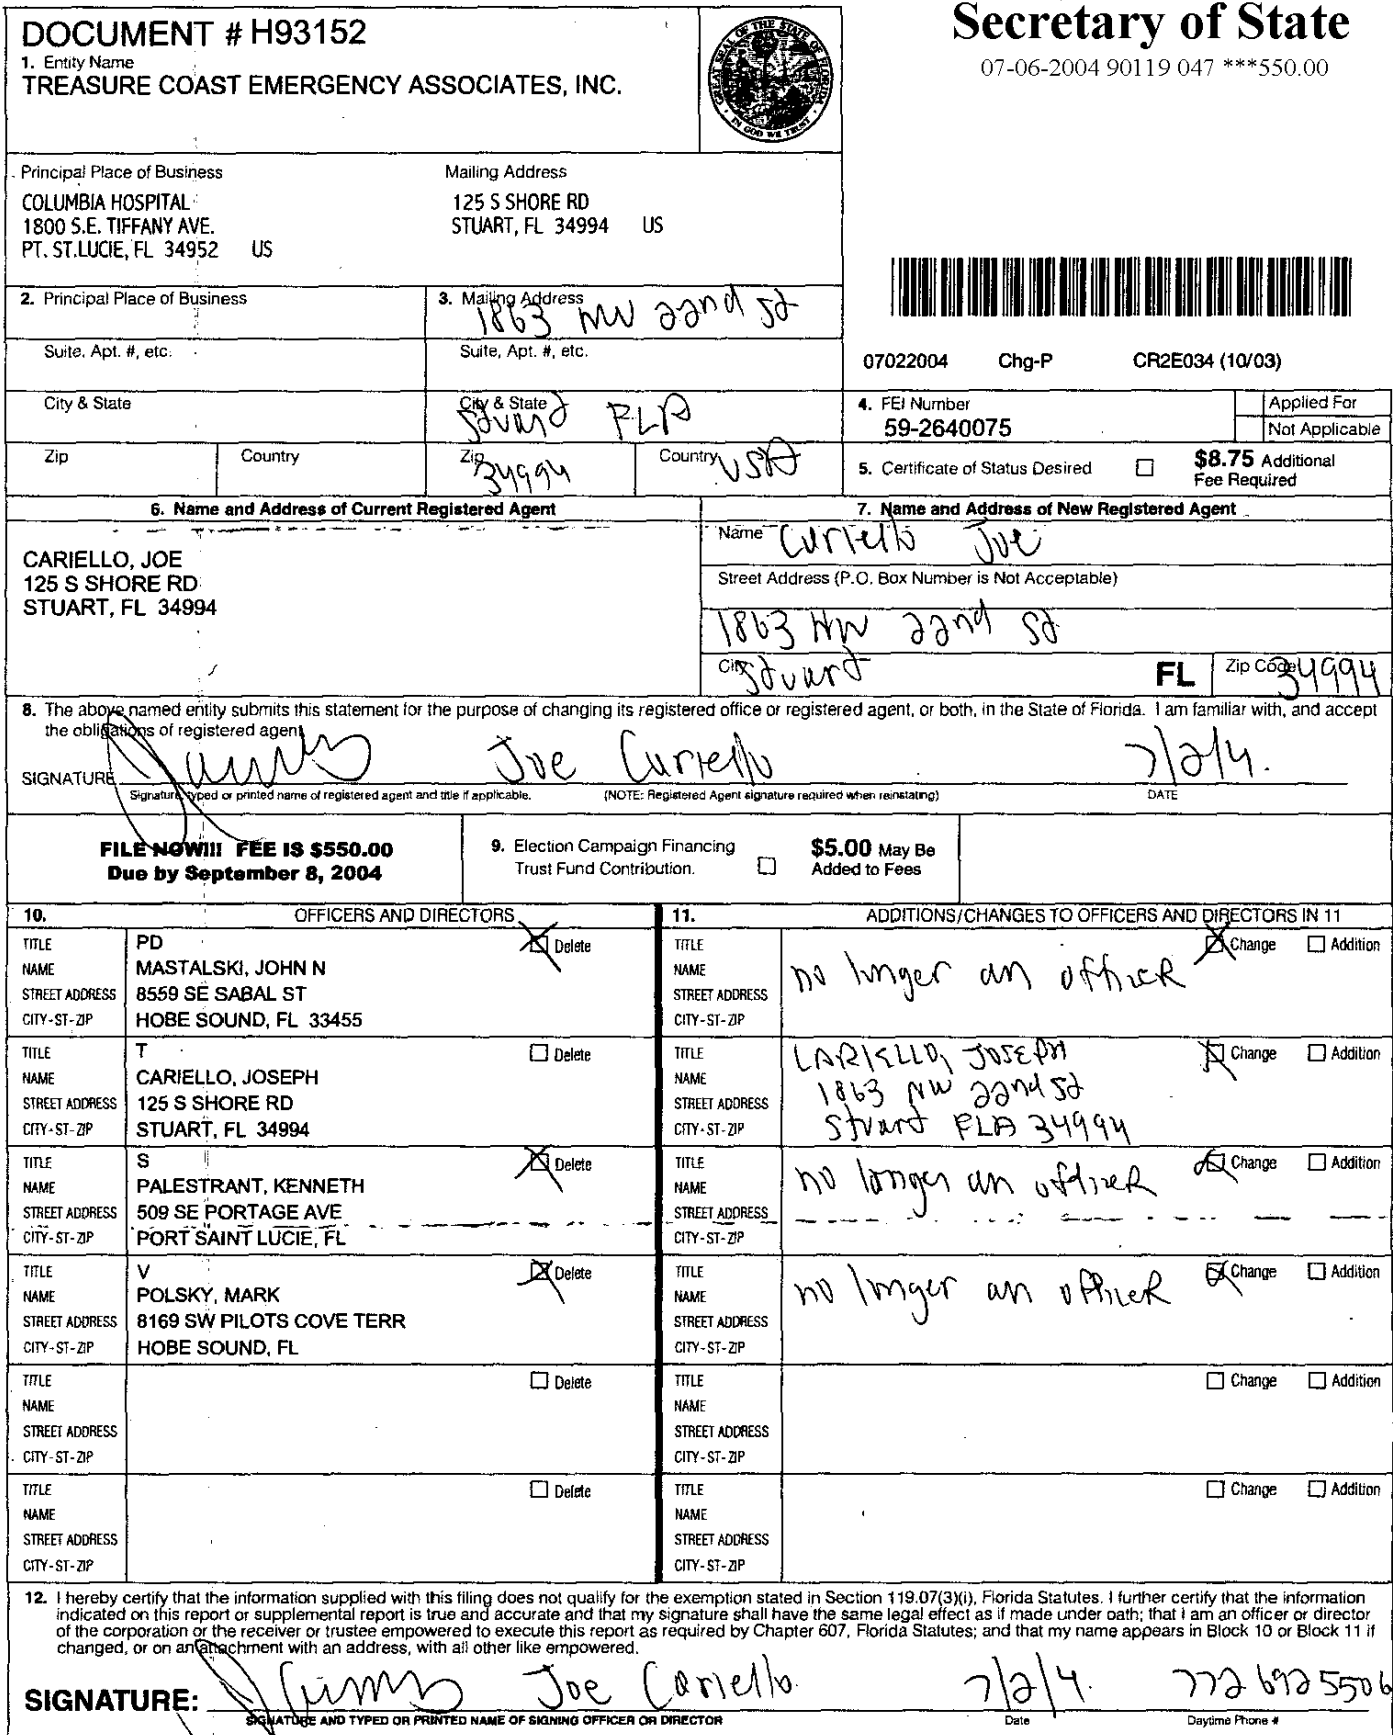 DOCUMENT # H93152
1. Entity Name
TREASURE COAST EMERGENCY ASSOCIATES, INC.
GREAT SEAL OF THE STATE OF FLORIDA
IN GOD WE TRUST
Secretary of State
07-06-2004 90119 047 ***550.00
Principal Place of Business
COLUMBIA HOSPITAL
1800 S.E. TIFFANY AVE.
PT. ST.LUCIE, FL 34952 US
Mailing Address
125 S SHORE RD
STUART, FL 34994 US
2. Principal Place of Business
3. Mailing Address
1863 NW 22nd St
Suite, Apt. #, etc.
Suite, Apt. #, etc.
07022004 Chg-P CR2E034 (10/03)
City & State
City & State
Stuart FLA
4. FEI Number
59-2640075
Applied For
Not Applicable
Zip
Country
Zip
34994
Country
USA
5. Certificate of Status Desired
$8.75 Additional
Fee Required
6. Name and Address of Current Registered Agent
CARIELLO, JOE
125 S SHORE RD
STUART, FL 34994
7. Name and Address of New Registered Agent
Name
Cariello Joe
Street Address (P.O. Box Number is Not Acceptable)
1863 NW 22nd St
City
Stuart
FL
Zip Code
34994
8. The above named entity submits this statement for the purpose of changing its registered office or registered agent, or both, in the State of Florida. I am familiar with, and accept
the obligations of registered agent.
SIGNATURE
Joe Cariello
7/2/4.
Signature, typed or printed name of registered agent and title if applicable.
(NOTE: Registered Agent signature required when reinstating)
DATE
FILE NOW!!! FEE IS $550.00
Due by September 8, 2004
9. Election Campaign Financing
Trust Fund Contribution.
$5.00 May Be
Added to Fees
10. OFFICERS AND DIRECTORS
11. ADDITIONS/CHANGES TO OFFICERS AND DIRECTORS IN 11
TITLE PD Delete
NAME MASTALSKI, JOHN N
STREET ADDRESS 8559 SE SABAL ST
CITY-ST-ZIP HOBE SOUND, FL 33455
TITLE Change Addition
NAME no longer an officer
STREET ADDRESS
CITY-ST-ZIP
TITLE T Delete
NAME CARIELLO, JOSEPH
STREET ADDRESS 125 S SHORE RD
CITY-ST-ZIP STUART, FL 34994
TITLE CARIELLO, JOSEPH Change Addition
NAME 1863 NW 22nd St
STREET ADDRESS
CITY-ST-ZIP Stuart FLA 34994
TITLE S Delete
NAME PALESTRANT, KENNETH
STREET ADDRESS 509 SE PORTAGE AVE
CITY-ST-ZIP PORT SAINT LUCIE, FL
TITLE Change Addition
NAME no longer an officer
STREET ADDRESS
CITY-ST-ZIP
TITLE V Delete
NAME POLSKY, MARK
STREET ADDRESS 8169 SW PILOTS COVE TERR
CITY-ST-ZIP HOBE SOUND, FL
TITLE Change Addition
NAME no longer an officer
STREET ADDRESS
CITY-ST-ZIP
TITLE Delete
NAME
STREET ADDRESS
CITY-ST-ZIP
TITLE Change Addition
NAME
STREET ADDRESS
CITY-ST-ZIP
TITLE Delete
NAME
STREET ADDRESS
CITY-ST-ZIP
TITLE Change Addition
NAME
STREET ADDRESS
CITY-ST-ZIP
12. I hereby certify that the information supplied with this filing does not qualify for the exemption stated in Section 119.07(3)(i), Florida Statutes. I further certify that the information
indicated on this report or supplemental report is true and accurate and that my signature shall have the same legal effect as if made under oath; that I am an officer or director
of the corporation or the receiver or trustee empowered to execute this report as required by Chapter 607, Florida Statutes; and that my name appears in Block 10 or Block 11 if
changed, or on an attachment with an address, with all other like empowered.
SIGNATURE:
Joe Cariello
7/2/4.
772 692 5506
SIGNATURE AND TYPED OR PRINTED NAME OF SIGNING OFFICER OR DIRECTOR
Date
Daytime Phone #